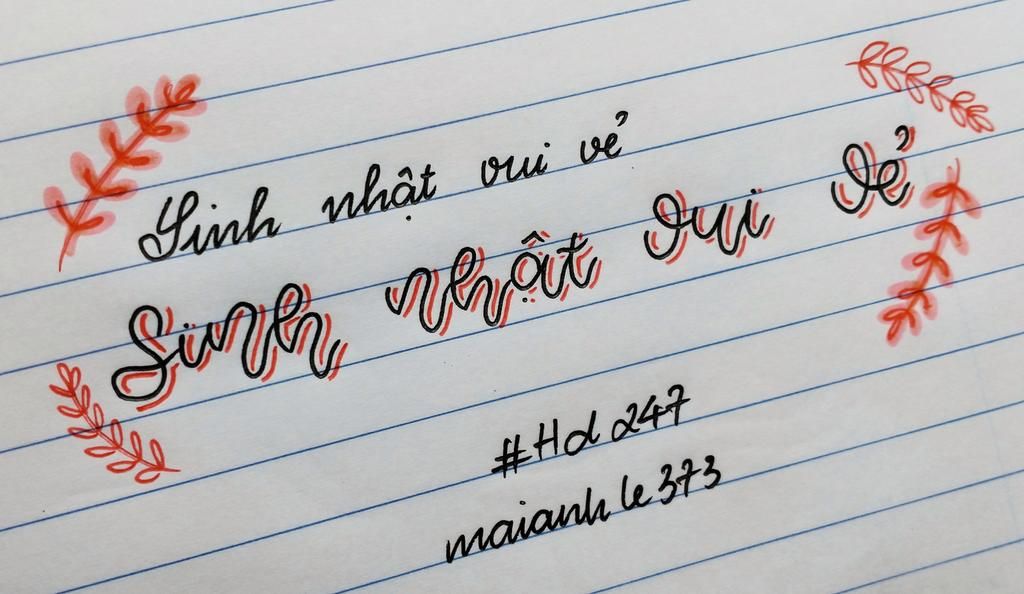 Sinh nhật vui vẻ
Sinh nhật vui vẻ
#Hd 247
maianh le 373